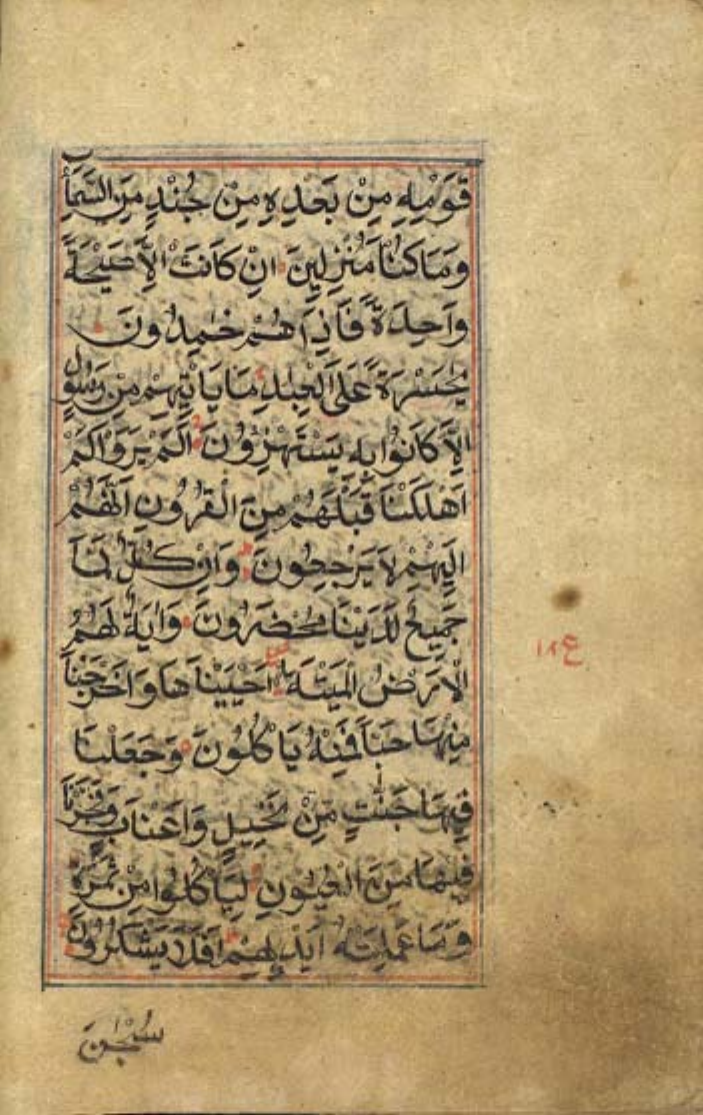 قَوْمِهٖ مِنْ بَعْدِهٖ مِنْ جُنْدٍ مِنَ السَّمَآءِ
وَمَا كُنَّا مُنْزِلِينَ اِنْ كَانَتْ اِلَّا صَيْحَةً
وَاحِدَةً فَاِذَا هُمْ خٰمِدُونَ
يٰحَسْرَةً عَلَى الْعِبَادِ مَا يَاْتِيهِمْ مِنْ رَسُولٍ
اِلَّا كَانُوْا بِهٖ يَسْتَهْزِءُوْنَ اَلَمْ يَرَوْا كَمْ
اَهْلَكْنَا قَبْلَهُمْ مِنَ الْقُرُونِ اَنَّهُمْ
اِلَيْهِمْ لَا يَرْجِعُونَ وَاِنْ كُلٌّ لَمَّا
جَمِيعٌ لَدَيْنَا مُحْضَرُونَ وَاٰيَةٌ لَهُمُ
الْاَرْضُ الْمَيْتَةُ اَحْيَيْنَاهَا وَاَخْرَجْنَا
مِنْهَا حَبًّا فَمِنْهُ يَاْكُلُونَ وَجَعَلْنَا
فِيهَا جَنّٰتٍ مِنْ نَخِيلٍ وَاَعْنَابٍ وَفَجَّرْنَا
فِيهَا مِنَ الْعُيُونِ لِيَاْكُلُوا مِنْ ثَمَرِهٖ
وَمَا عَمِلَتْهُ اَيْدِيهِمْ اَفَلَا يَشْكُرُونَ
سُبْحٰنَ